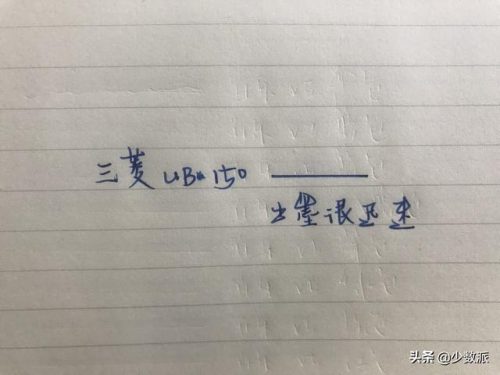 三菱 UB-150
出墨很迅速
头条 @少数派